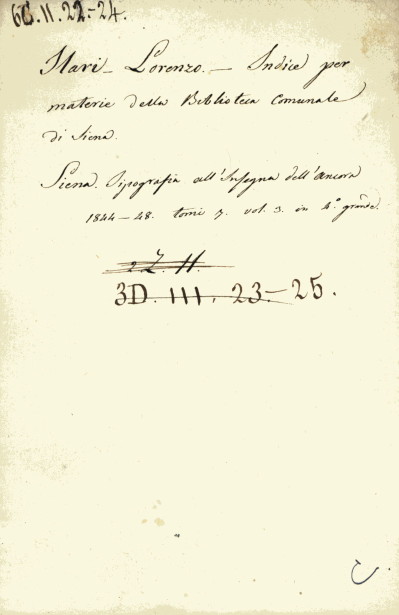 6C.11.22-24.
Ilari - Lorenzo. - Indice per
materie della Biblioteca Comunale
di Siena.
Siena. Tipografia all'Insegna dell'Ancora
1844-48. tomi 7. vol. 3. in 4.° grande.
2Z. 11.
3D. 111. 23-25.